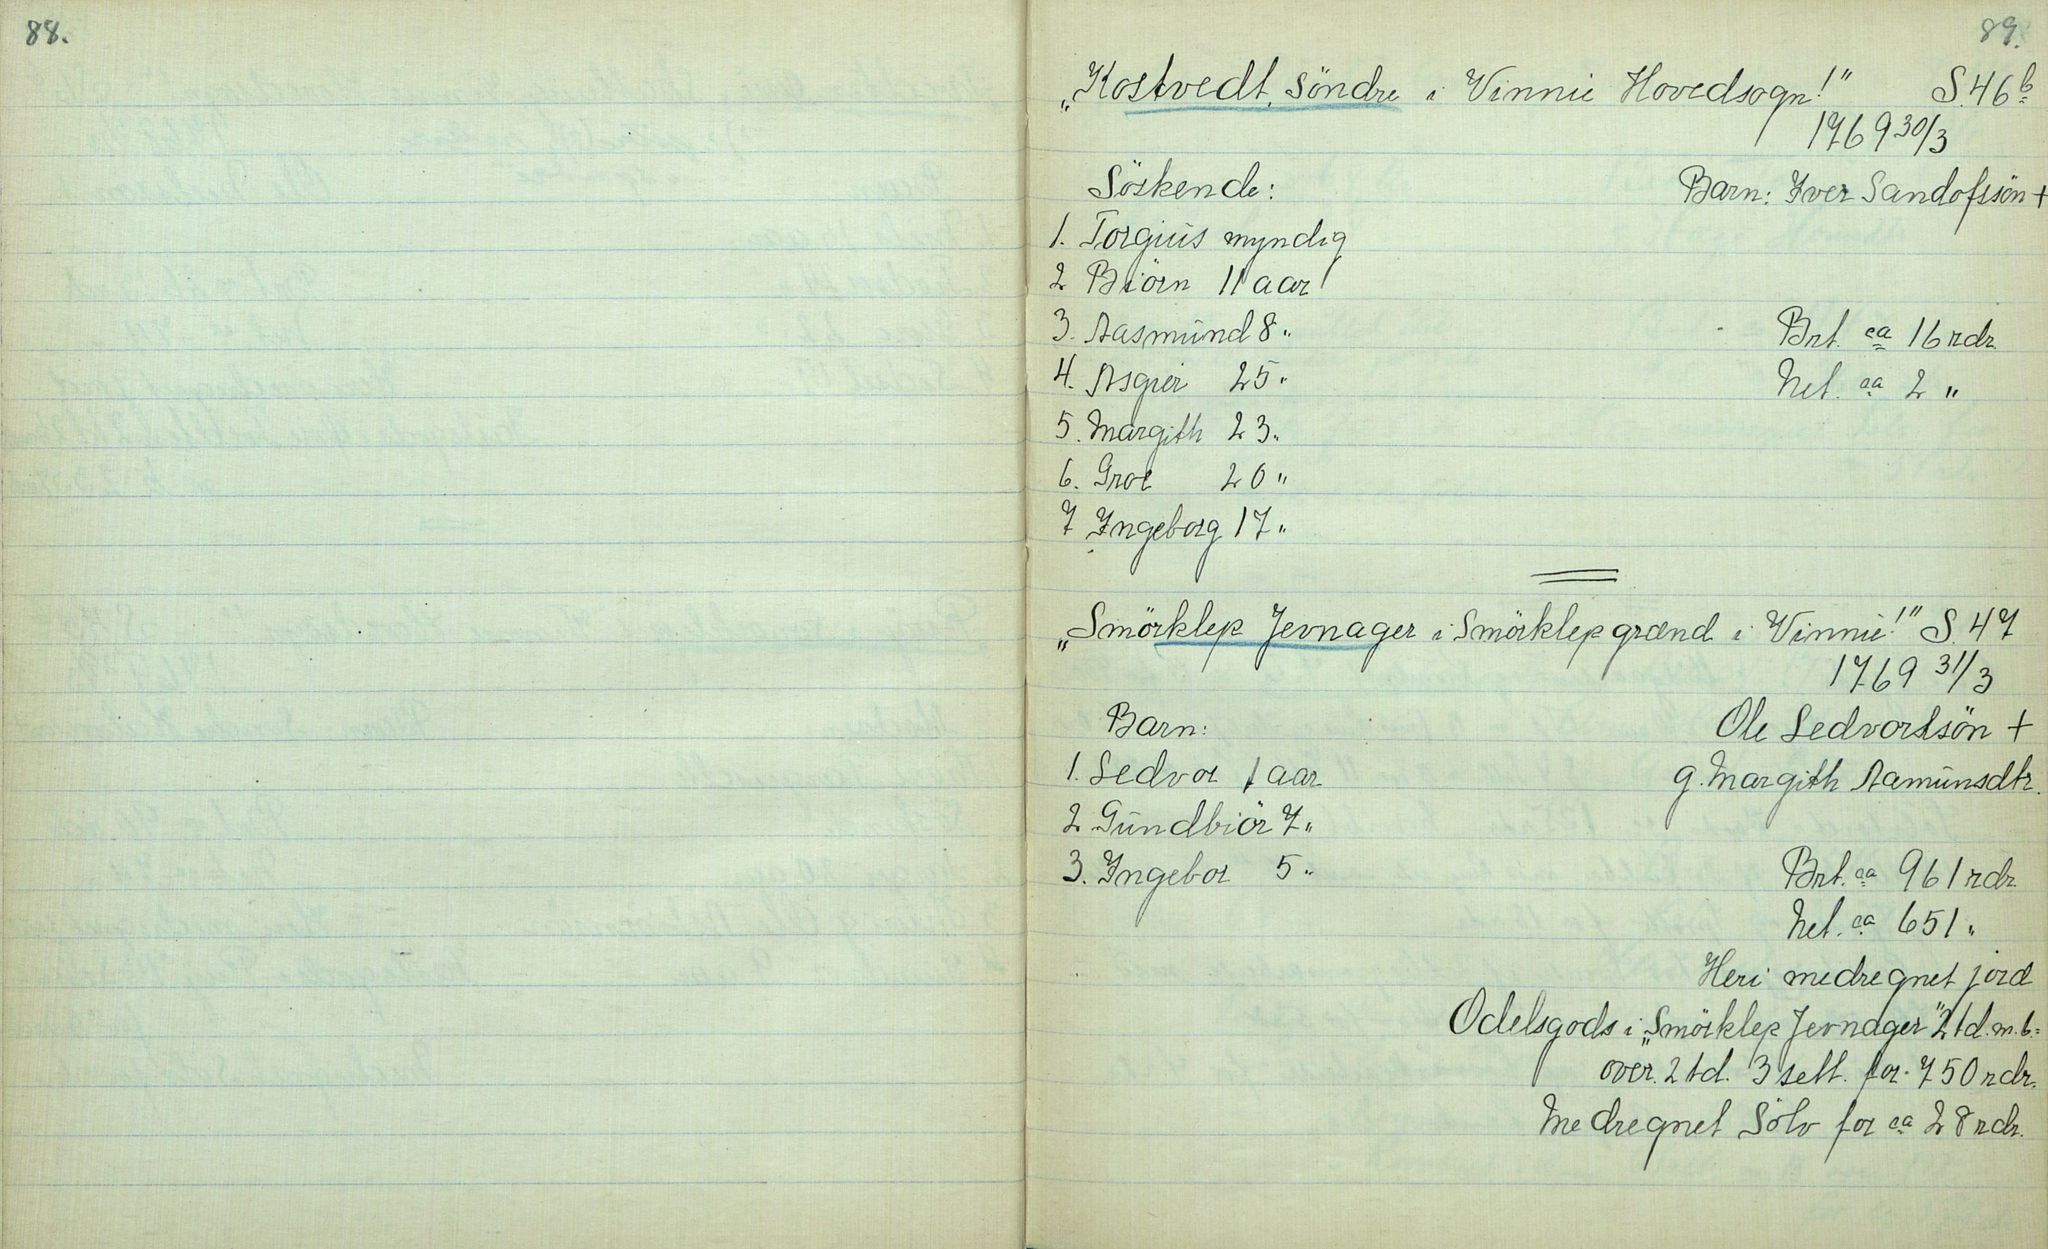 88.
89.
„Kostvedt, Söndre i Vinnie Hovedsogn!" S.46b
1769 30/3
Söskende: Barn: Iver Sandofssön +
1. Torgiüs myndig
2 Biörn 11 aar
3. Aasmünd 8 „ Brt. ca 16 rdr.
4. Asgier 25 „ Net. ca 2 „
5. Margith 23 „
6. Groe 20 „
7 Ingeborg 17 „
„Smörklep Jevnager i Smörklepgrænd i Vinnie!" S.47
1769 31/3
Barn: Ole Ledvorssön +
1. Ledvor 1 aar g. Margith Aamünsdtr.
2. Gündbiör 7 „
3. Ingebor 5 „ Brt. ca 961 rdr
Net. ca 651 „
Heri medregnet jord
Odelsgods i „Smörklep Jevnager" 2 td. m. b.
over. 2 td. 3 sett. for. 750 rdr.
Medregnet Sölv for ca 28 rdr.